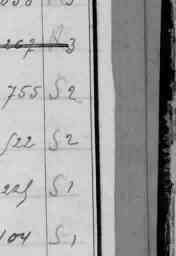 267 3
755 S2
522 S2
225 S1
104 S1